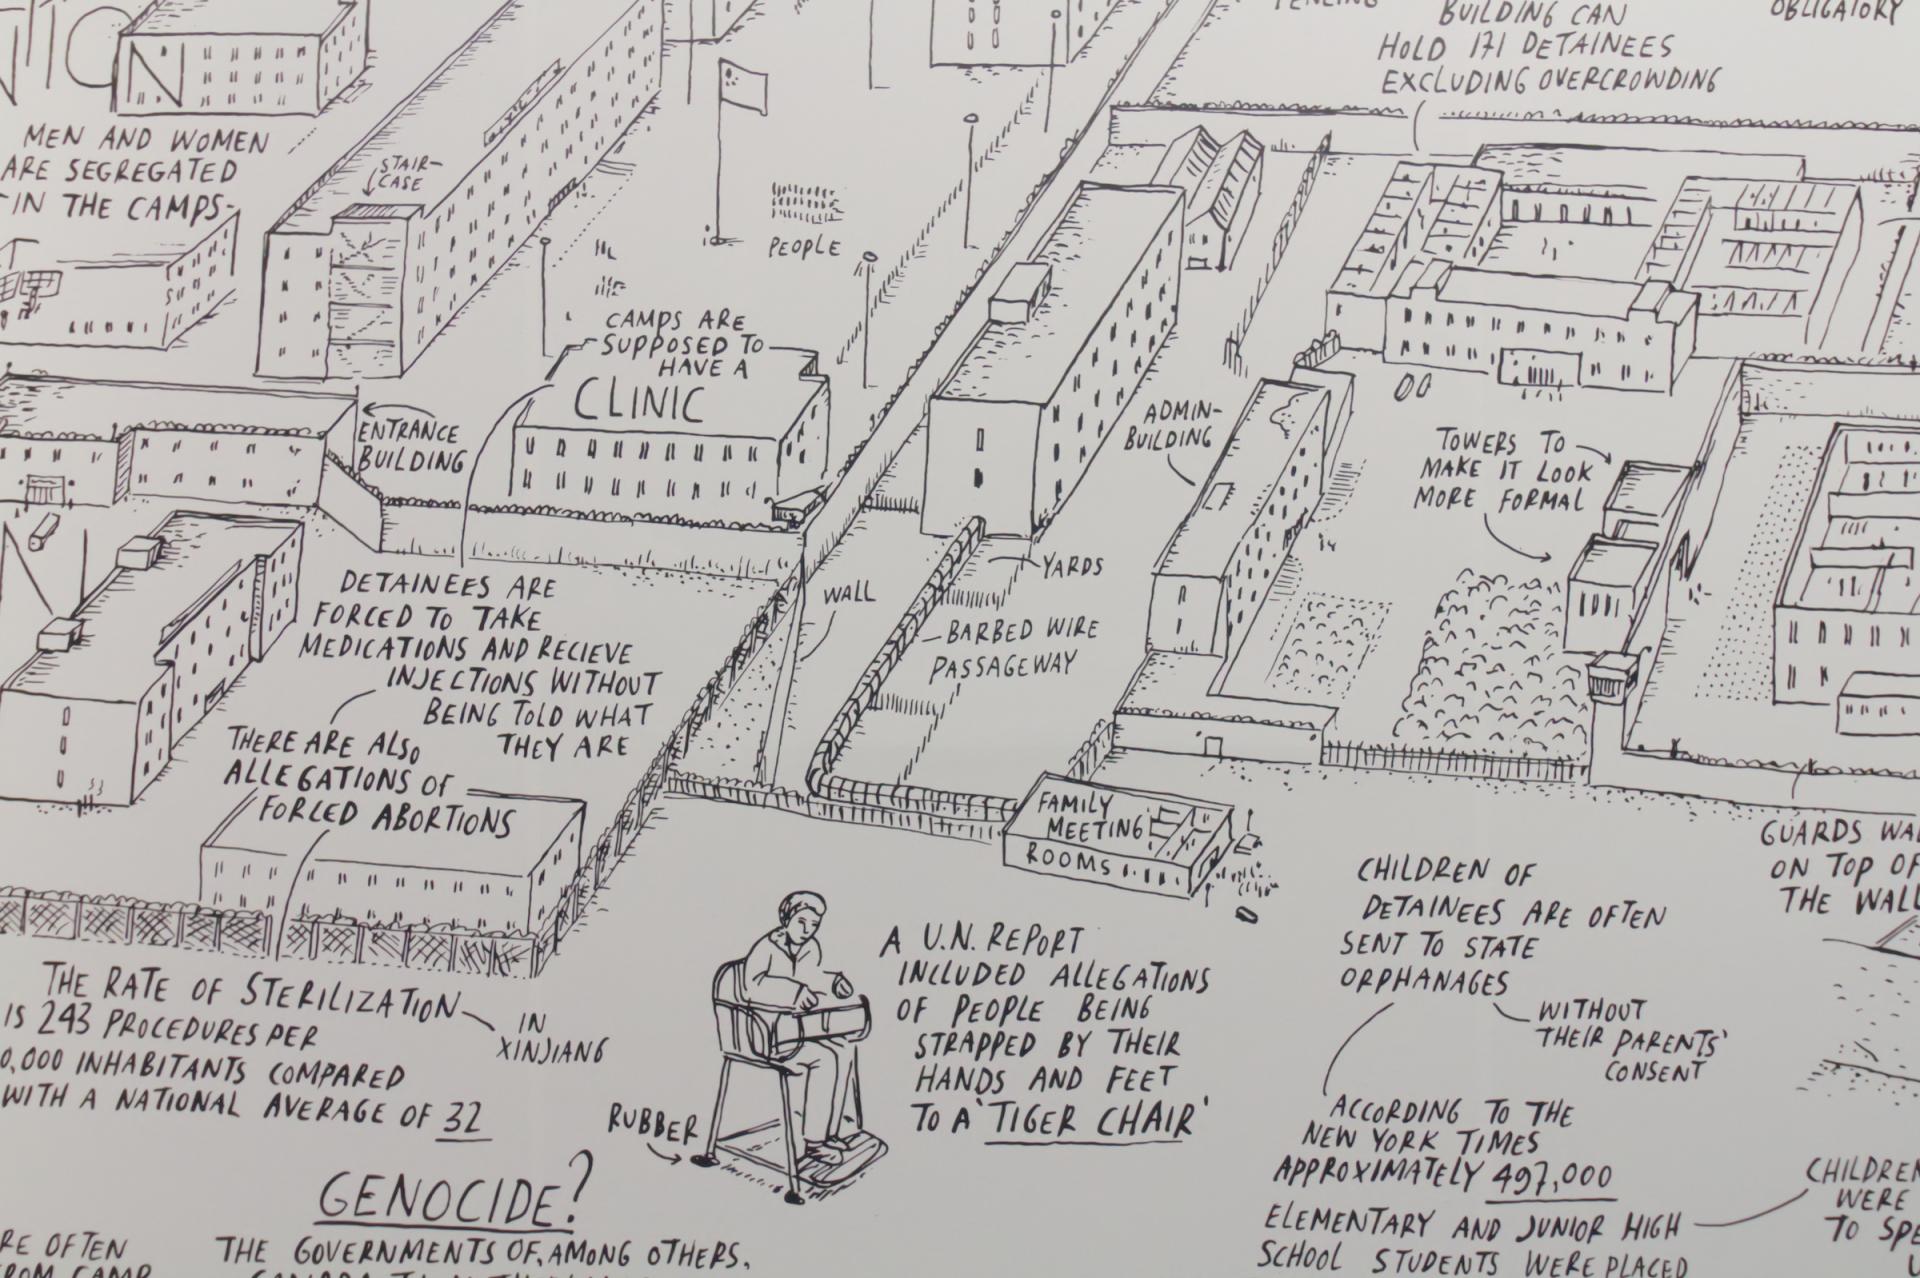 BUILDING CAN
HOLD 171 DETAINEES
EXCLUDING OVERCROWDING
OBLIGATORY
MEN AND WOMEN
ARE SEGREGATED
IN THE CAMPS-
STAIR-
CASE
PEOPLE
CAMPS ARE
SUPPOSED TO
HAVE A
CLINIC
ENTRANCE
BUILDING
ADMIN-
BUILDING
TOWERS TO
MAKE IT LOOK
MORE FORMAL
YARDS
WALL
BARBED WIRE
PASSAGEWAY
DETAINEES ARE
FORCED TO TAKE
MEDICATIONS AND RECIEVE
INJECTIONS WITHOUT
BEING TOLD WHAT
THEY ARE
THERE ARE ALSO
ALLEGATIONS OF
FORCED ABORTIONS
FAMILY
MEETING
ROOMS
GUARDS
ON TOP OF
THE WALL
THE RATE OF STERILIZATION
IN
XINJIANG
IS 243 PROCEDURES PER
0,000 INHABITANTS COMPARED
WITH A NATIONAL AVERAGE OF 32
RUBBER
A U.N. REPORT
INCLUDED ALLEGATIONS
OF PEOPLE BEING
STRAPPED BY THEIR
HANDS AND FEET
TO A 'TIGER CHAIR'
CHILDREN OF
DETAINEES ARE OFTEN
SENT TO STATE
ORPHANAGES
WITHOUT
THEIR PARENTS'
CONSENT
ACCORDING TO THE
NEW YORK TIMES
APPROXIMATELY 497,000
ELEMENTARY AND JUNIOR HIGH
SCHOOL STUDENTS WERE PLACED
CHILDREN
WERE
TO
GENOCIDE?
THE GOVERNMENTS OF, AMONG OTHERS,
OFTEN